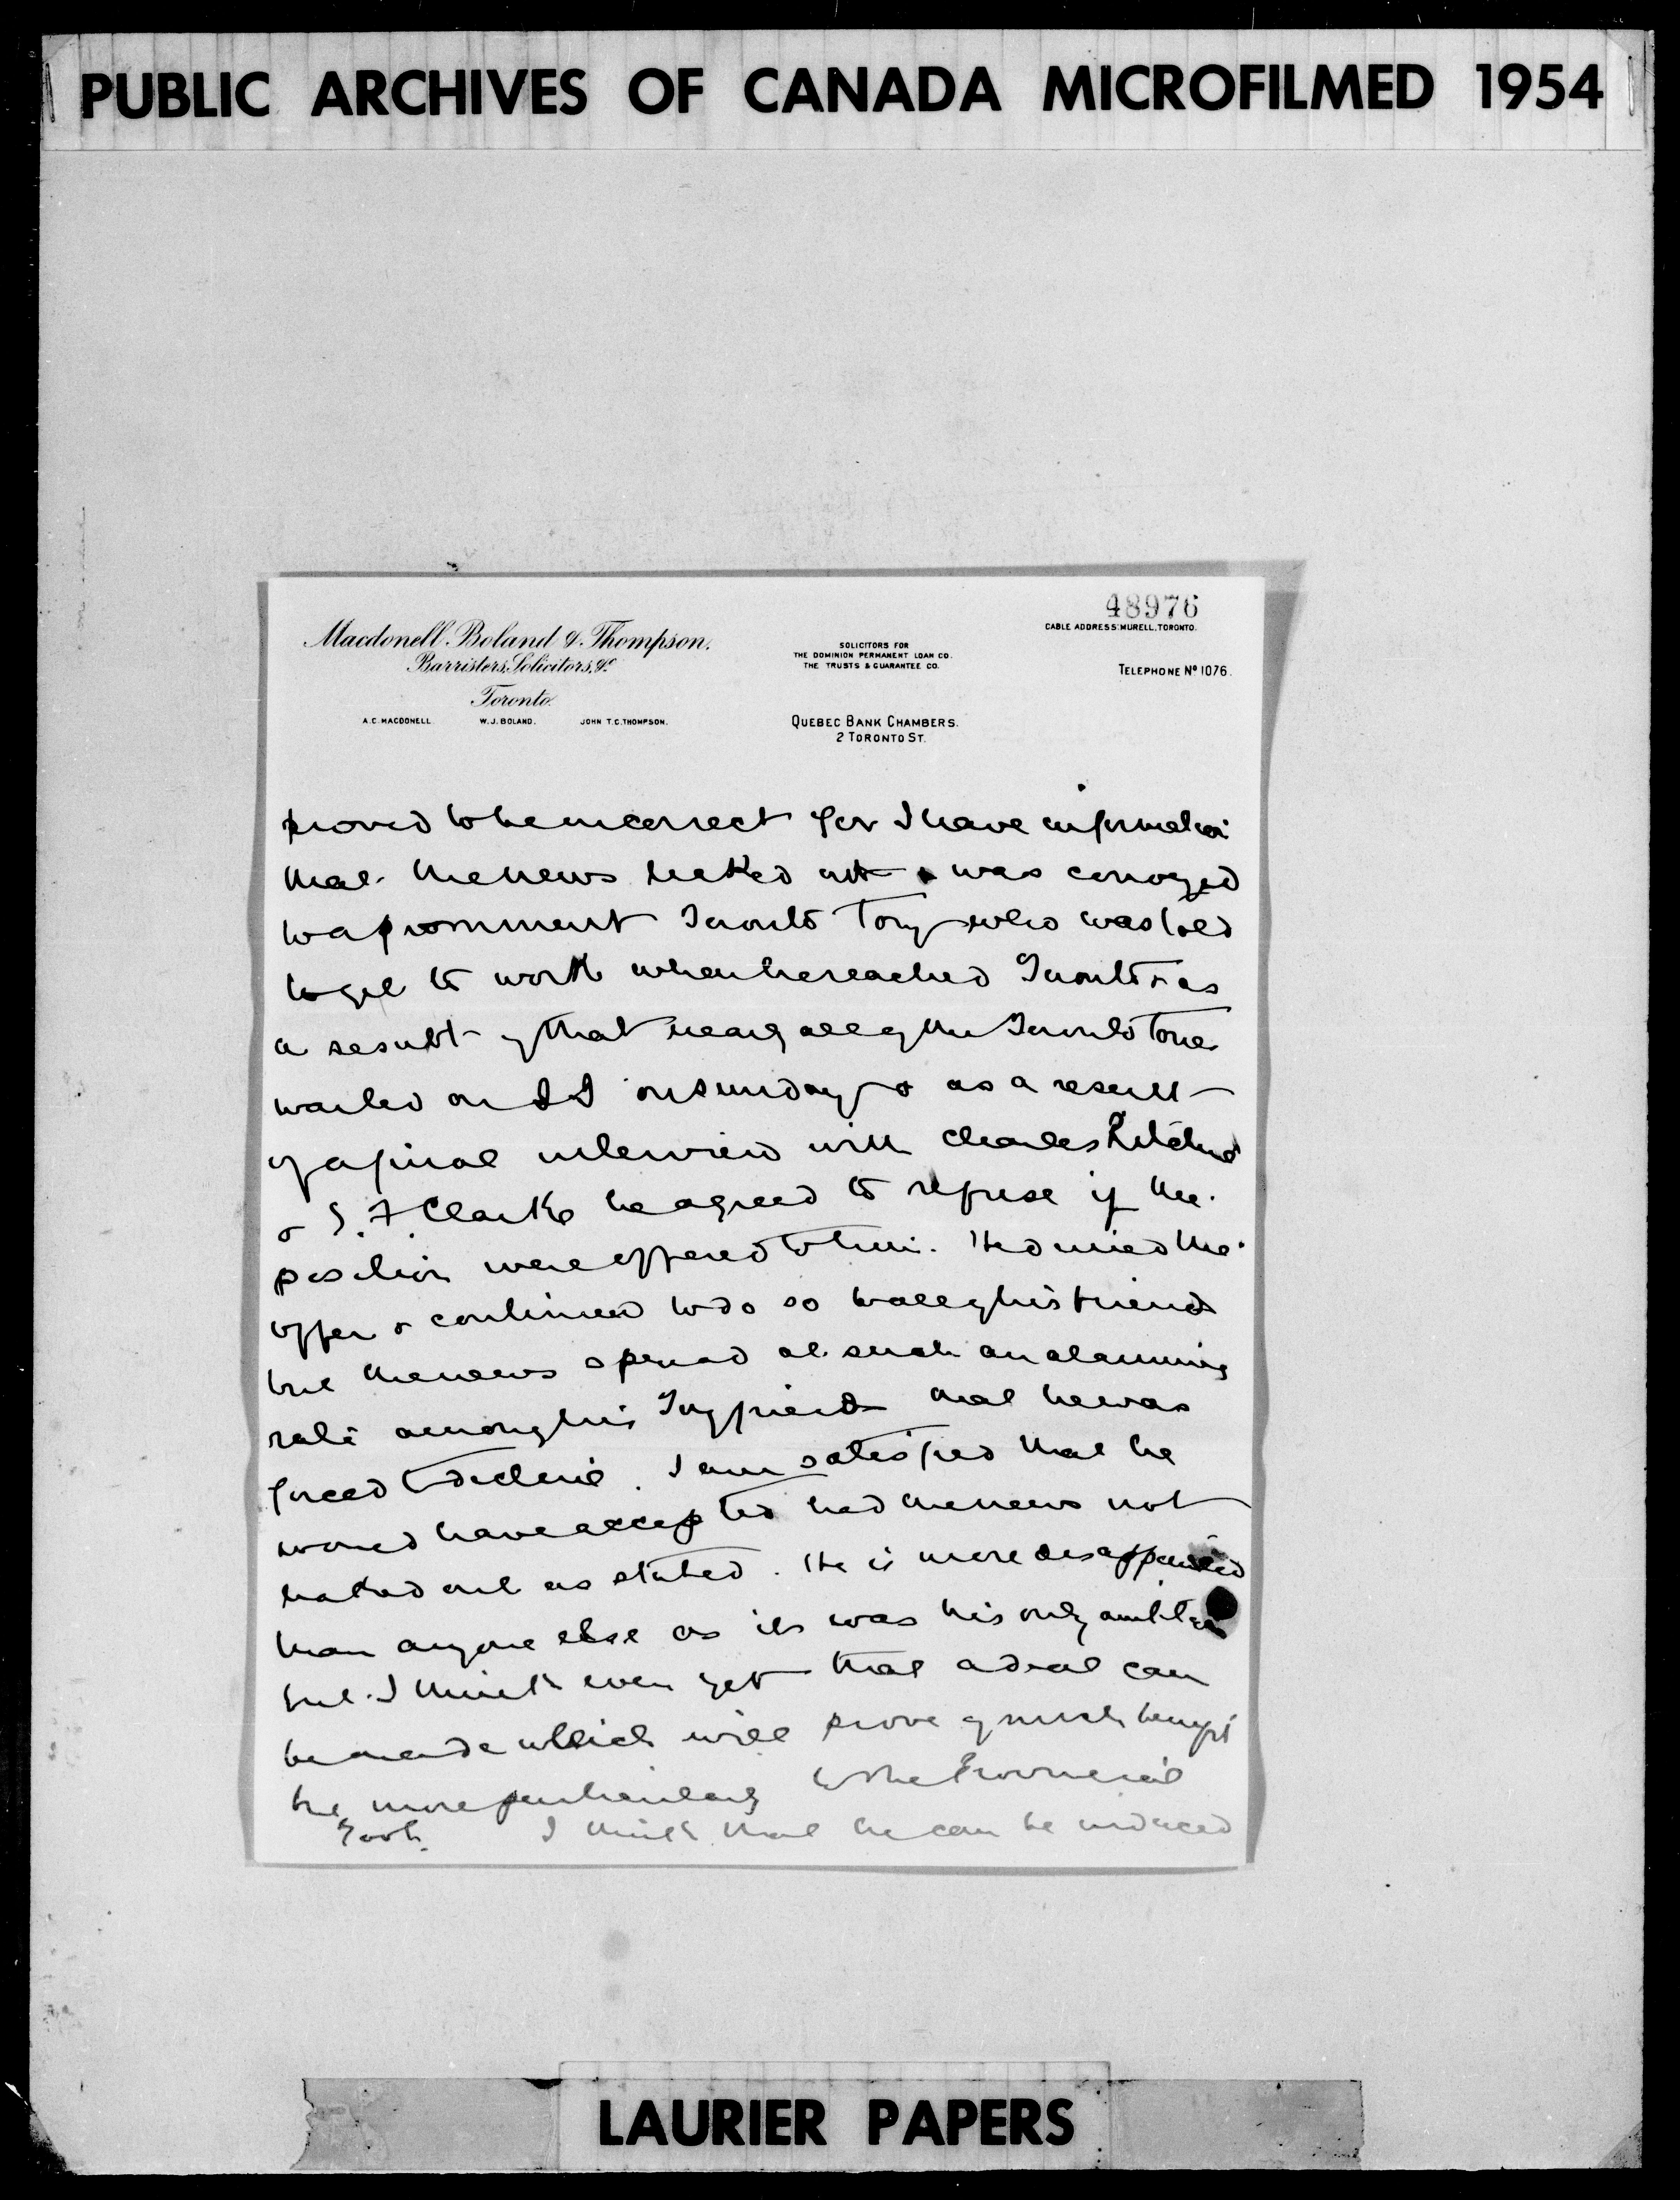 PUBLIC ARCHIVES OF CANADA MICROFILMED 1954
48976
CABLE ADDRESS: MURELL, TORONTO.
Macdonell, Boland & Thompson,
Barristers, Solicitors, &c
Toronto.
A.C. MACDONELL. W.J. BOLAND. JOHN T.C. THOMPSON.
SOLICITORS FOR
THE DOMINION PERMANENT LOAN CO.
THE TRUSTS & GUARANTEE CO.
TELEPHONE No 1076.
QUEBEC BANK CHAMBERS.
2 TORONTO ST.
proved to be incorrect for I have information
that the news leaked out & was conveyed
to a prominent Toronto Tory who was told
to get to work when he reached Toronto & as
a result of that nearly all of the Toronto Tories
waited on on Sunday & as a result
of a final interview with Charles Ritchie
& Clarke he agreed to refuse if the
position were offered to him. He denied the
offer & continued to do so to all of his friends
but the news spread at such an alarming
rate among his Tory friends that he was
forced to decline. I am satisfied that he
would have accepted had the news not
leaked out as stated. He is more disappointed
than anyone else as it was his only ambition
but I think even yet that a deal can
be made which will prove of much benefit
more particularly to the Provincial
Govt. I think that he can be induced
LAURIER PAPERS